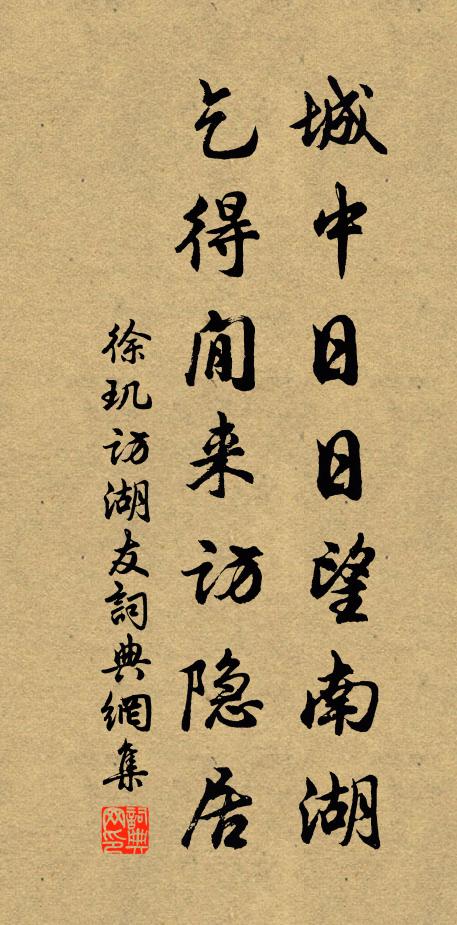 城中日日望南湖
乞得闲来访隐居
徐玑访湖友詞典網集
詞典网印